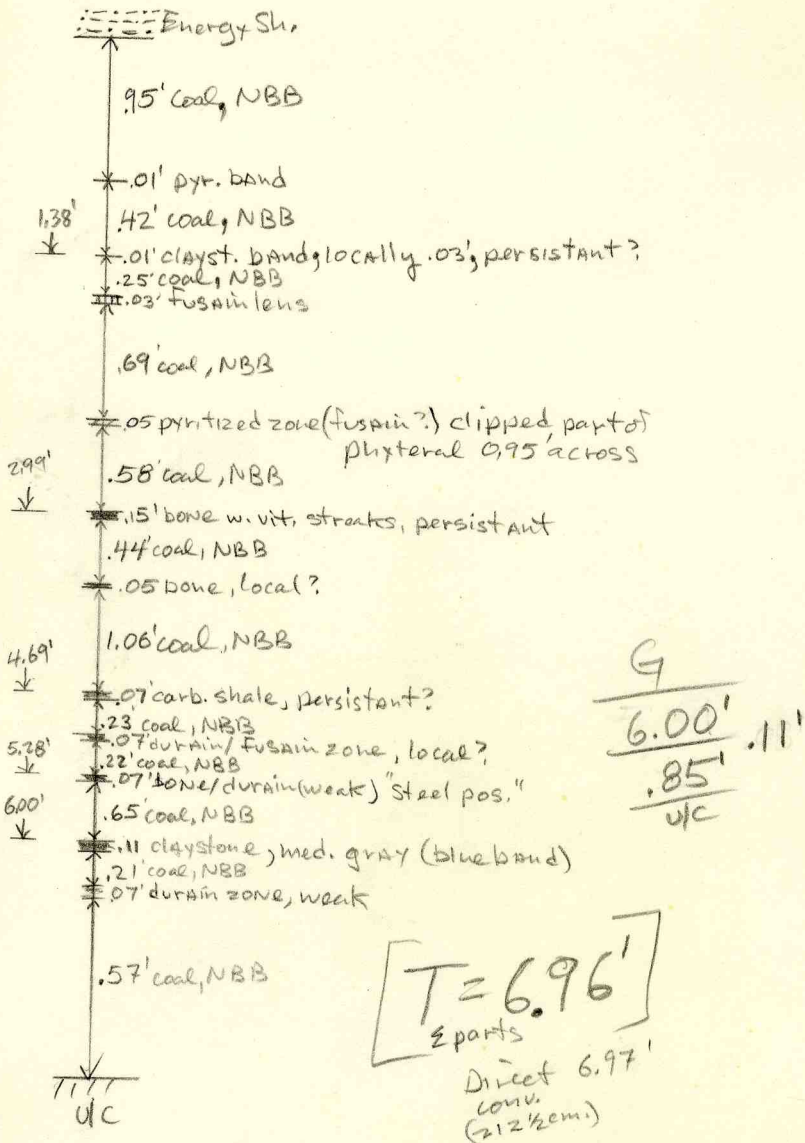 Energy Sh.
.95' coal, NBB
.01' pyr. band
.42' coal, NBB
1.38'
.01' clayst. band, locally .03', persistant?
.25' coal, NBB
.03' fusain lens
.69' coal, NBB
.05 pyritized zone (fusain?) clipped part of
phyteral 0.95' across
.58' coal, NBB
2.99'
.15' bone w. vit. streaks, persistant
.44' coal, NBB
.05 bone, local?
1.06' coal, NBB
4.69'
.07' carb. shale, persistant?
.23' coal, NBB
.07' durain/fusain zone, local?
.22' coal, NBB
5.28'
.07' bone/durain (weak) "Steel pos."
.65' coal, NBB
6.00'
.11 claystone, med. gray (blue band)
.21' coal, NBB
.07' durain zone, weak
.57' coal, NBB
U/C
G
6.00'
.11'
.85'
U/C
[T = 6.96']
Σ parts
Direct 6.97'
conv.
(212 ½ cm.)